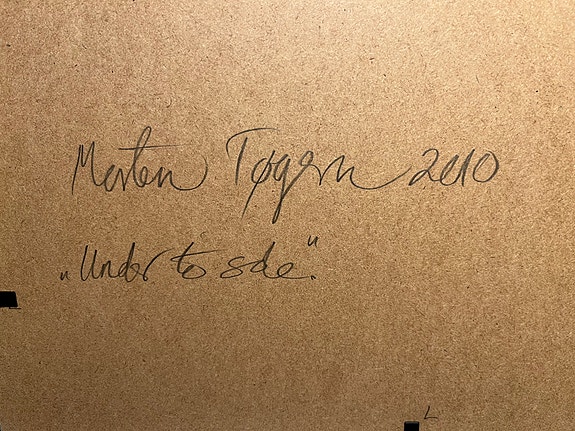 Morten Tøgern 2010
„Under to sole".